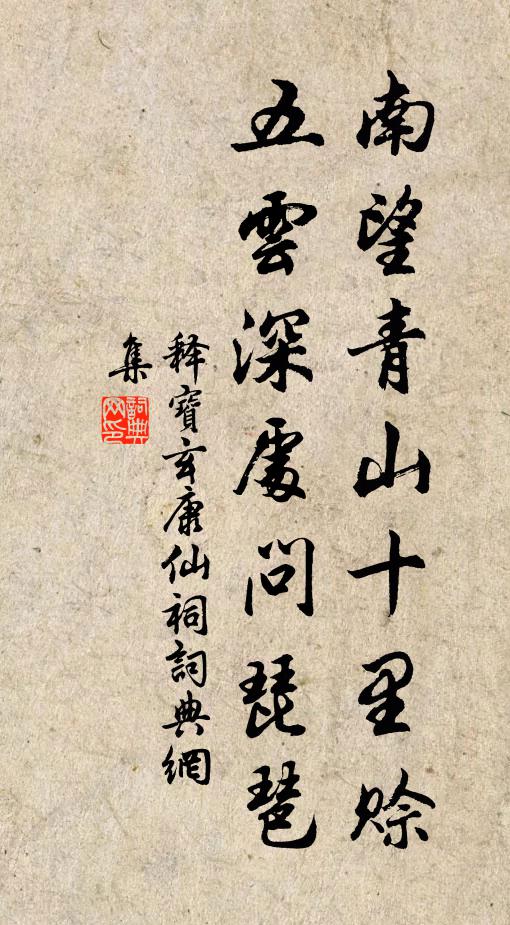 南望青山十里賒
五雲深處問琵琶
釋寶玄康仙祠詞典網
集
詞典
网印